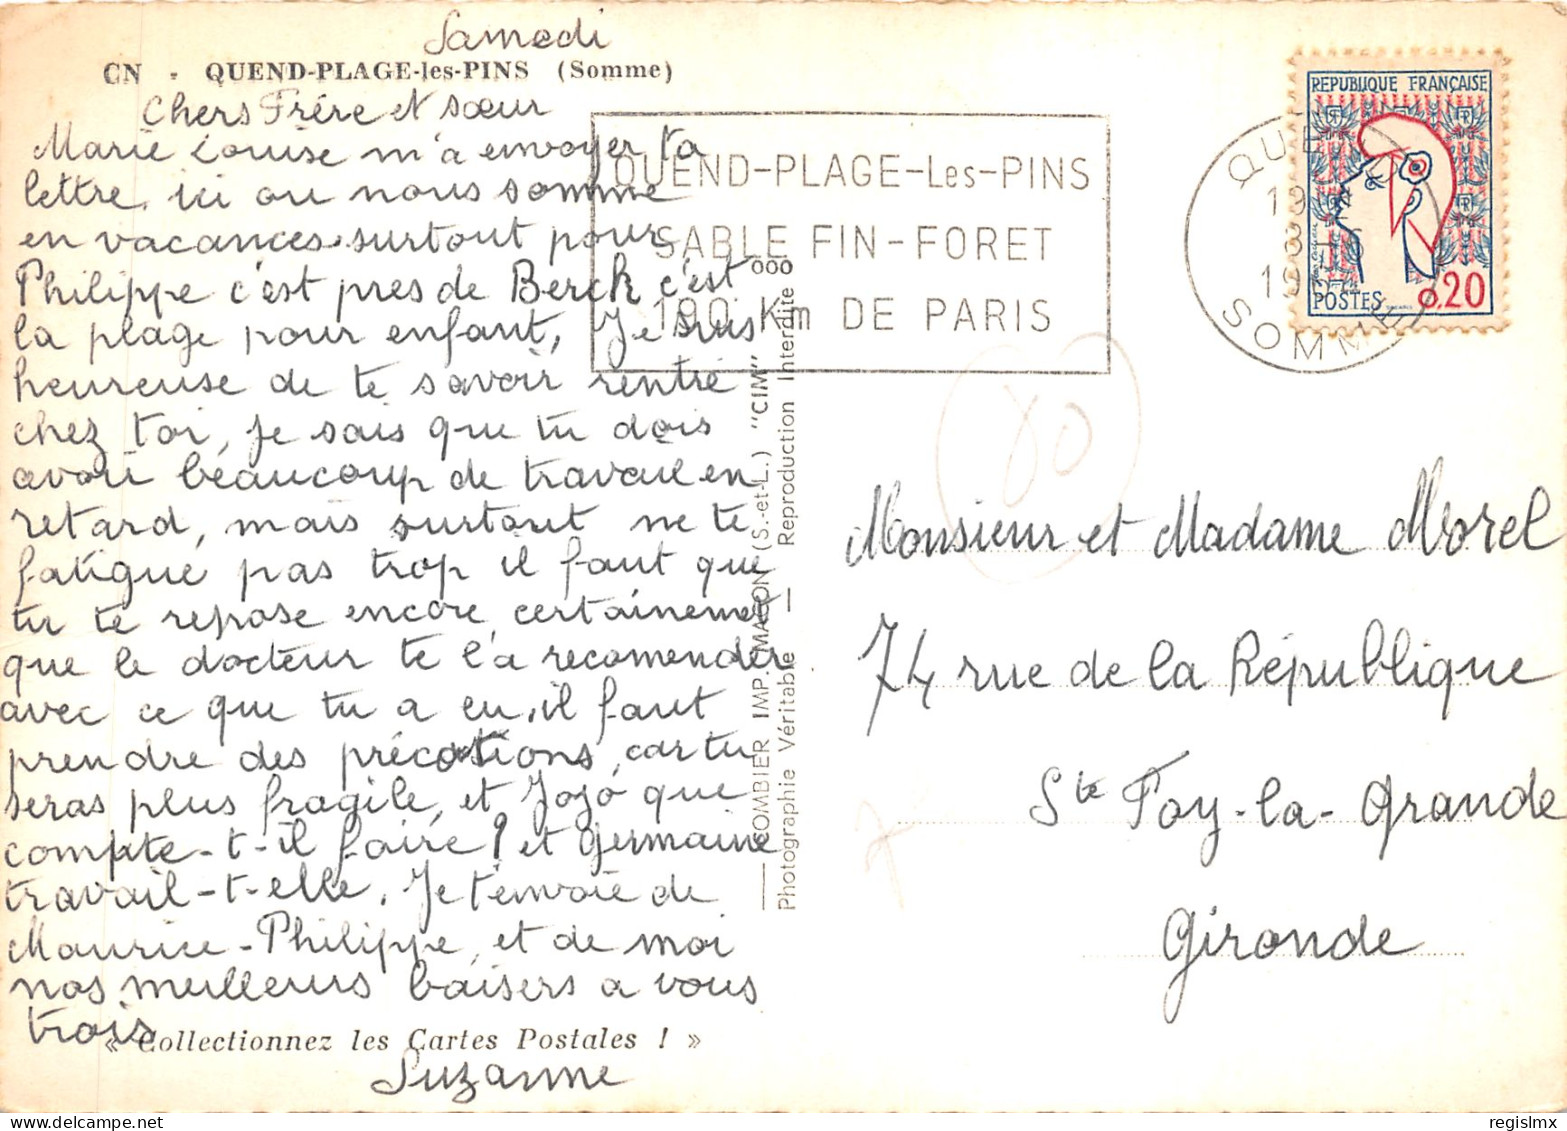 Samedi
CN - QUEND-PLAGE-les-PINS (Somme)
Chers Frére et sœur
Marie Louise m'a envoyer ta
lettre, ici ou nous somme
en vacances, surtout pour
Philippe c'est pres de Berck c'est
la plage pour enfant, Je suis
heureuse de te savoir rentré
chez toi, je sais que tu dois
avoir béaucoup de travail en
retard, mais surtout ne te
fatigue pas trop il faut que
tu te repose encore certainemet
que le docteur te l'a recomender
avec ce que tu a eu, il faut
prendre des précotions, car tu
seras plus fragile, et Jojo que
compte-t-il faire? et Germaine
travail-t-elle. Je t'envoie de
Maurice-Philippe, et de moi
nos meilleurs baisers a vous
trois
« Collectionnez les Cartes Postales ! »
Suzanne
COMBIER IMP. MACON (S.-et-L.) "CIM"
Photographie Véritable — Reproduction Interdite
QUEND-PLAGE-Les-PINS
SABLE FIN-FORET
190 Km DE PARIS
SOMME
REPUBLIQUE FRANÇAISE
POSTES 0,20
80
Monsieur et Madame Morel
74 rue de la République
Ste Foy-la-Grande
Gironde
regislmx